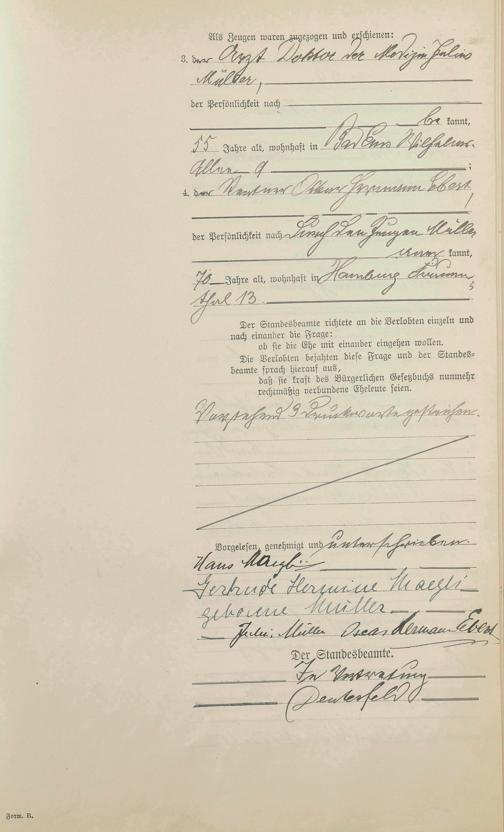 Als Zeugen waren zugezogen und erschienen:
3. der Arzt Doktor der Medizin Julius
Müller,
der Persönlichkeit nach
be kannt,
55 Jahre alt, wohnhaft in Bad Ems Wilhelms-
allee 9 ;
4. der Rentner Oscar Hermann Ebert,
der Persönlichkeit nach durch den Zeugen Müller
aner kannt,
70 Jahre alt, wohnhaft in Hamburg
thal 13.
Der Standesbeamte richtete an die Verlobten einzeln und
nach einander die Frage:
ob sie die Ehe mit einander eingehen wollen.
Die Verlobten bejahten diese Frage und der Standes-
beamte sprach hierauf aus,
daß sie kraft des Bürgerlichen Gesetzbuchs nunmehr
rechtmäßig verbundene Eheleute seien.
Vorstehend 3 Druckworte gestrichen.
Vorgelesen, genehmigt und unterschrieben
Hans Maegli
Gertrude Hermine Maegli
geborene Müller
Julius Müller Oscar Hermann Ebert
Der Standesbeamte.
In Vertretung
Form. B.